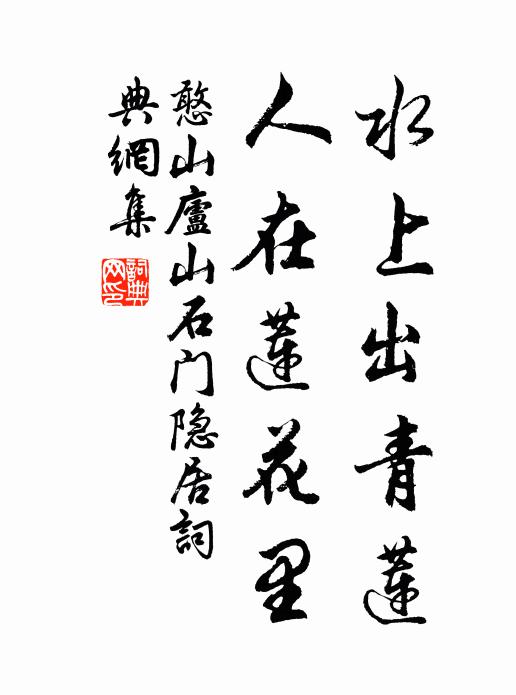 水上出青蓮
人在蓮花里
憨山廬山石门隐居詞
典網集
詞典
网印